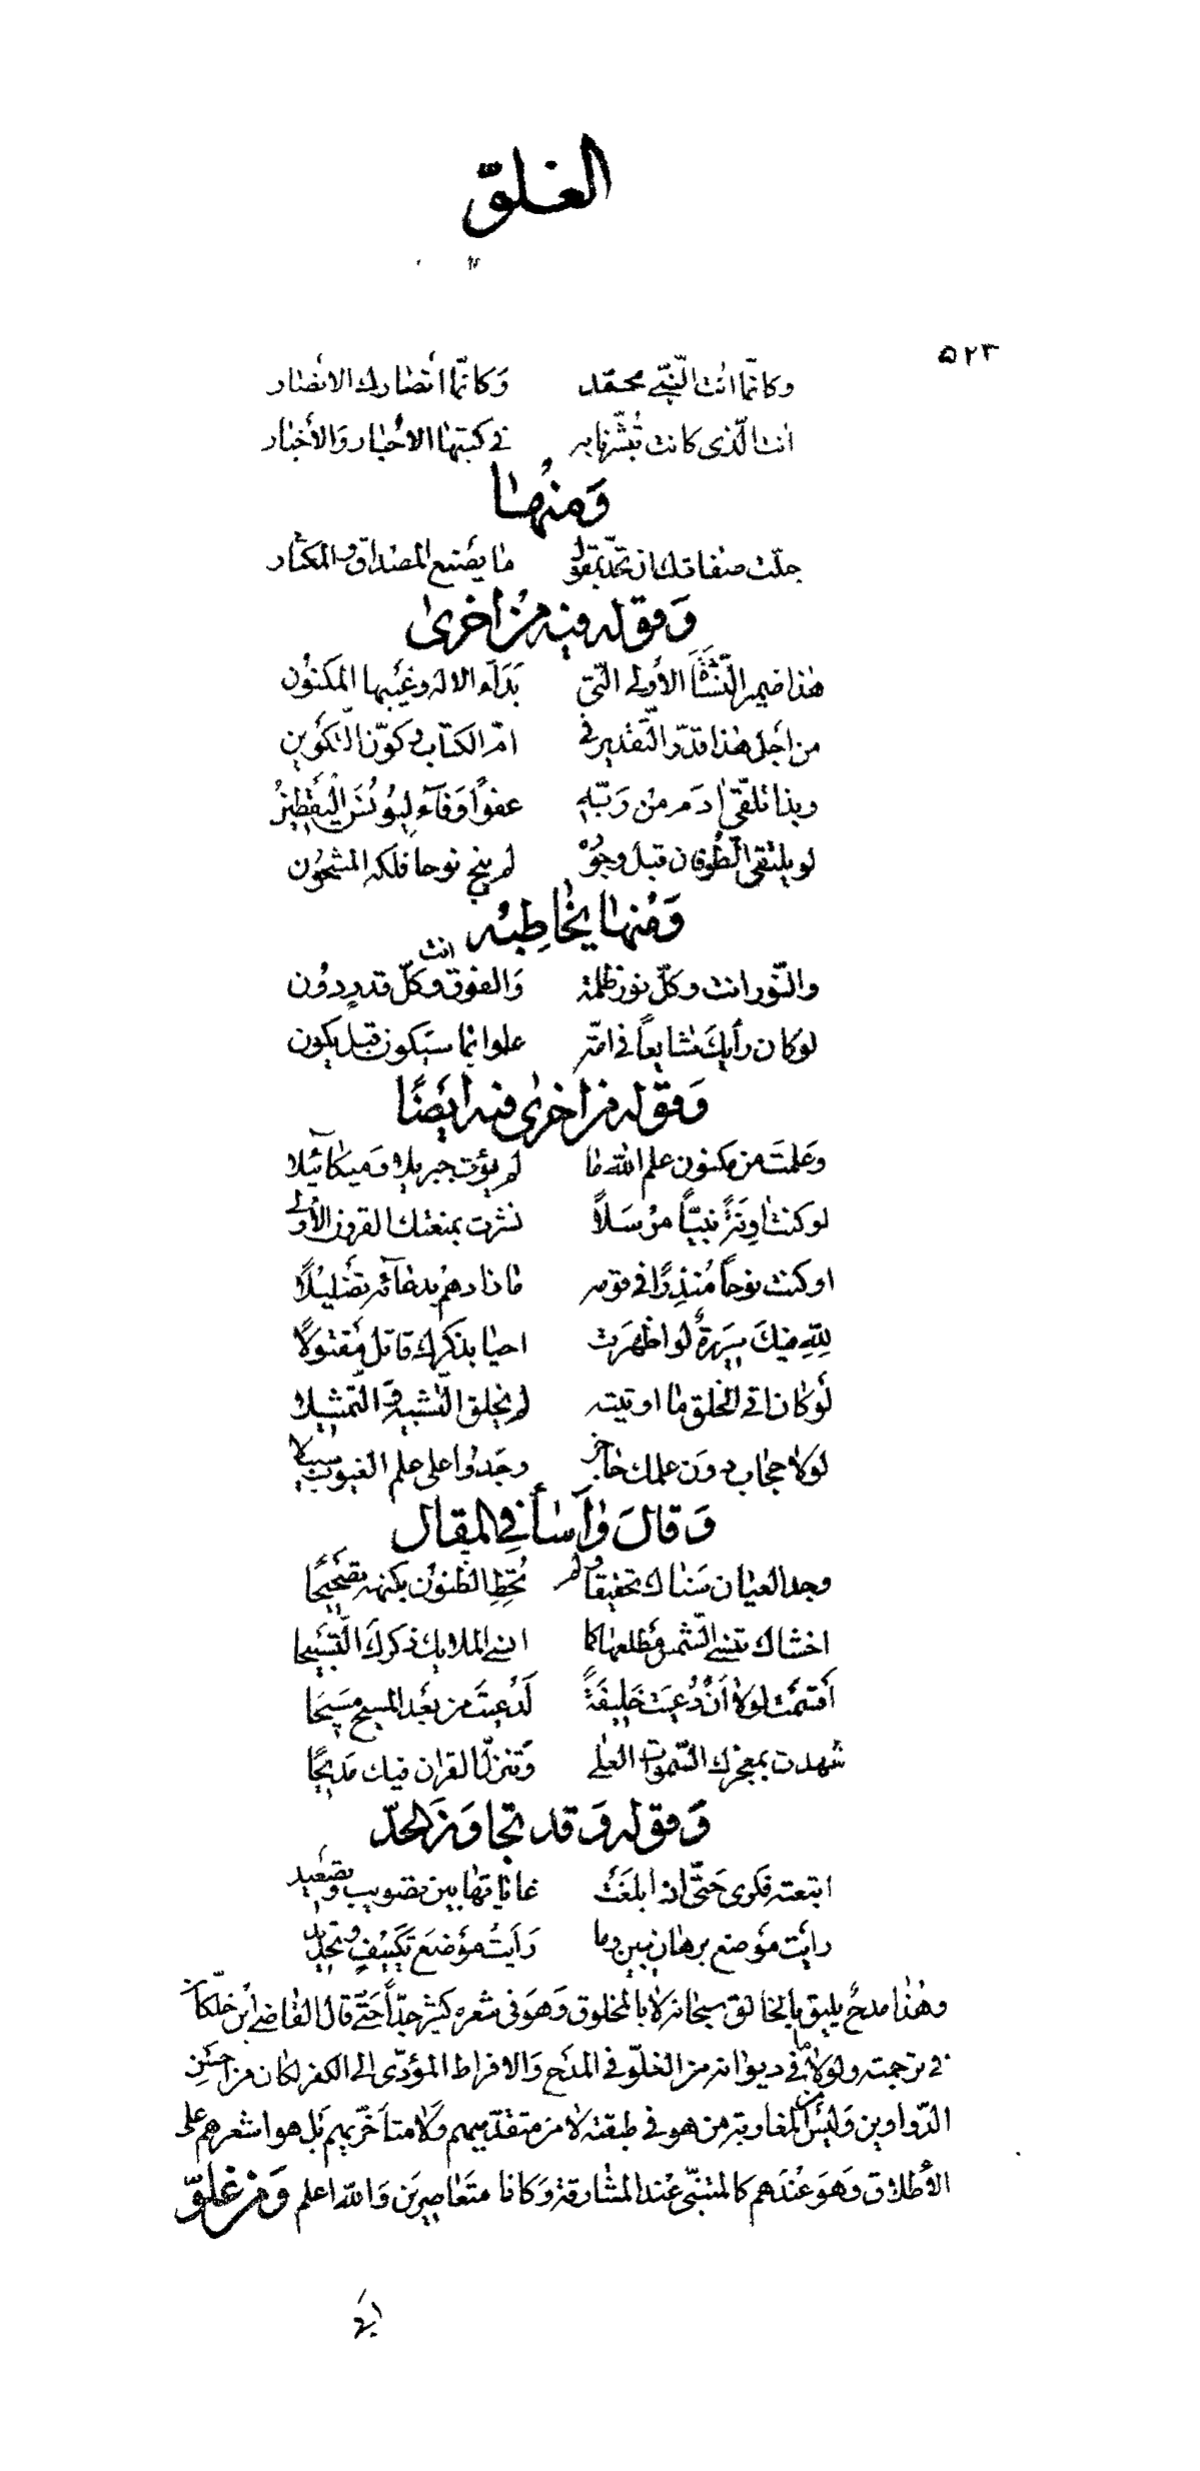 الغلوّ
٥٢٣
وكانّما انت النّبيّ محمّد وَكانّما أنصارك الانصار
انت الّذى كانت تُبشّرنا به في كتبها الأحبار وَالأخبار
وَمنها
جلّت صفاتك ان تحدّ بمقول ما يصنع المصداق والمكثار
وَقوله فيه من أخرى
هٰذا ضمير النّشأة الأولى الّتى بَدَأَ الاله وغيبها المكنون
من اجل هٰذا قدّر التّقدير فى امّ الكتاب وكوّن التّكوين
وبذا تلقّى ادم من ربّه عفوًا وَفآء ليونس اليقطين
لو يلتقى الطّوفان قبل وجوده لم ينج نوحا فلكه المشحون
وَمنها يخاطبه
والنّور انت وكلّ نور ظلمة وَالفوق انت وكلّ قدر دون
لو كان رأيك شايعاً فى امّة علموا بما سيكون قبل يكون
وَقوله من اخرى فيه ايضًا
وعلمتَ من مكنون علم الله ما لم يؤت جبريلا وَميكآئيلا
لو كنت اونة نبيّاً مرسَلاً نشرت بمبعثك القرون الأولى
او كنت نوحاً مُنذِرًا فى قومه ما زادهم بدعآئه تضليلًا
لِلّهِ فيكَ سريرةٌ لو اظهرَت احيا بذكرك قاتل مقتولًا
لو كان اتى الخلق ما اوتيته لم يخلق التّشبيه والتّمثيلا
لولا حجاب دون علمك حاجز وجدوا على علم الغيوب سبيلا
وَقالَ وَأسأ في المقال
وجد العيان سناك تحقيقًا ولم تُحِطِ الظّنون بكنهه تصحيحًا
اخشاك تنسى الشّمس مطلعها كما انسى الملايك ذكرك التّسبيحا
أقسمت لولا أن دُعيت خليفةً لَدُعيتَ من بعد المسيح مسيحا
شهدت بمعجزك السّموات العلى وَتنزّل القران فيك مديحًا
وَقوله وَقد تجاوز الحدّ
اتبعته فكرى حتّى اذا بلغَت غاياتها بين تصويب وتصعيد
رأيت موضع برهان يبين وما رأيتُ موضع تكييف وتحديد
وهٰذا مدحٌ يليق بالخالق سبحانه لا بالمخلوق وَهوَ فى شعره كثير جدّاً حتّى قال القاضى ابن خلّكان
فى ترجمته ولولا ما فى ديوانه من الغلوّ فى المدح وَالافراط المؤدّى الى الكفر لكان من احسن
الدّواوين وَليس فى المغاربة من هو فى طبقته لا من متقدّميهم وَلا متأخّريهم بَل هو اشعرهم على
الأطلاق وَهوَ عندهم كالمتنبّى عند المشارقة وَكانا متعاصرين وَالله اعلم وَمن غلوّ
ابى